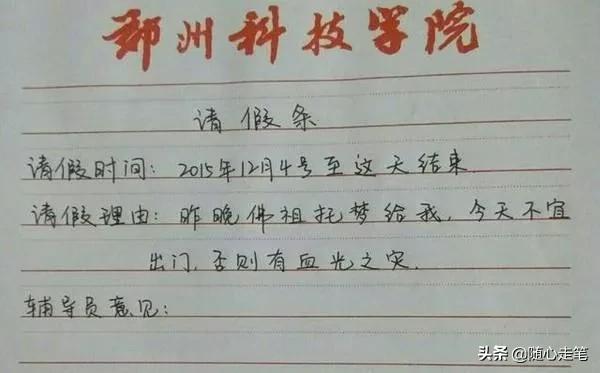 郑州科技学院
请假条
请假时间：2015年12月4号至这天结束.
请假理由：昨晚佛祖托梦给我，今天不宜
出门，否则有血光之灾.
辅导员意见：
头条 @随心走笔